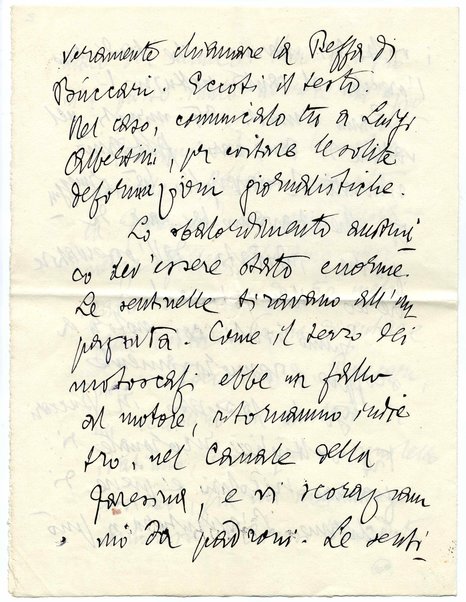 veramente chiamare la Beffa di
Buccari. Eccoti il testo.
Nel caso, comunicalo tu a Luigi
Albertini, per evitare le solite
deformazioni giornalistiche.
Lo sbalordimento austria
co dev'essere stato enorme.
Le sentinelle tiravano all'im
pazzata. Come il terzo dei
motoscafi ebbe un fallo
al motore, ritornammo indie
tro, nel Canale della
Faresina, e vi scorazzam
mo da padroni. Le senti